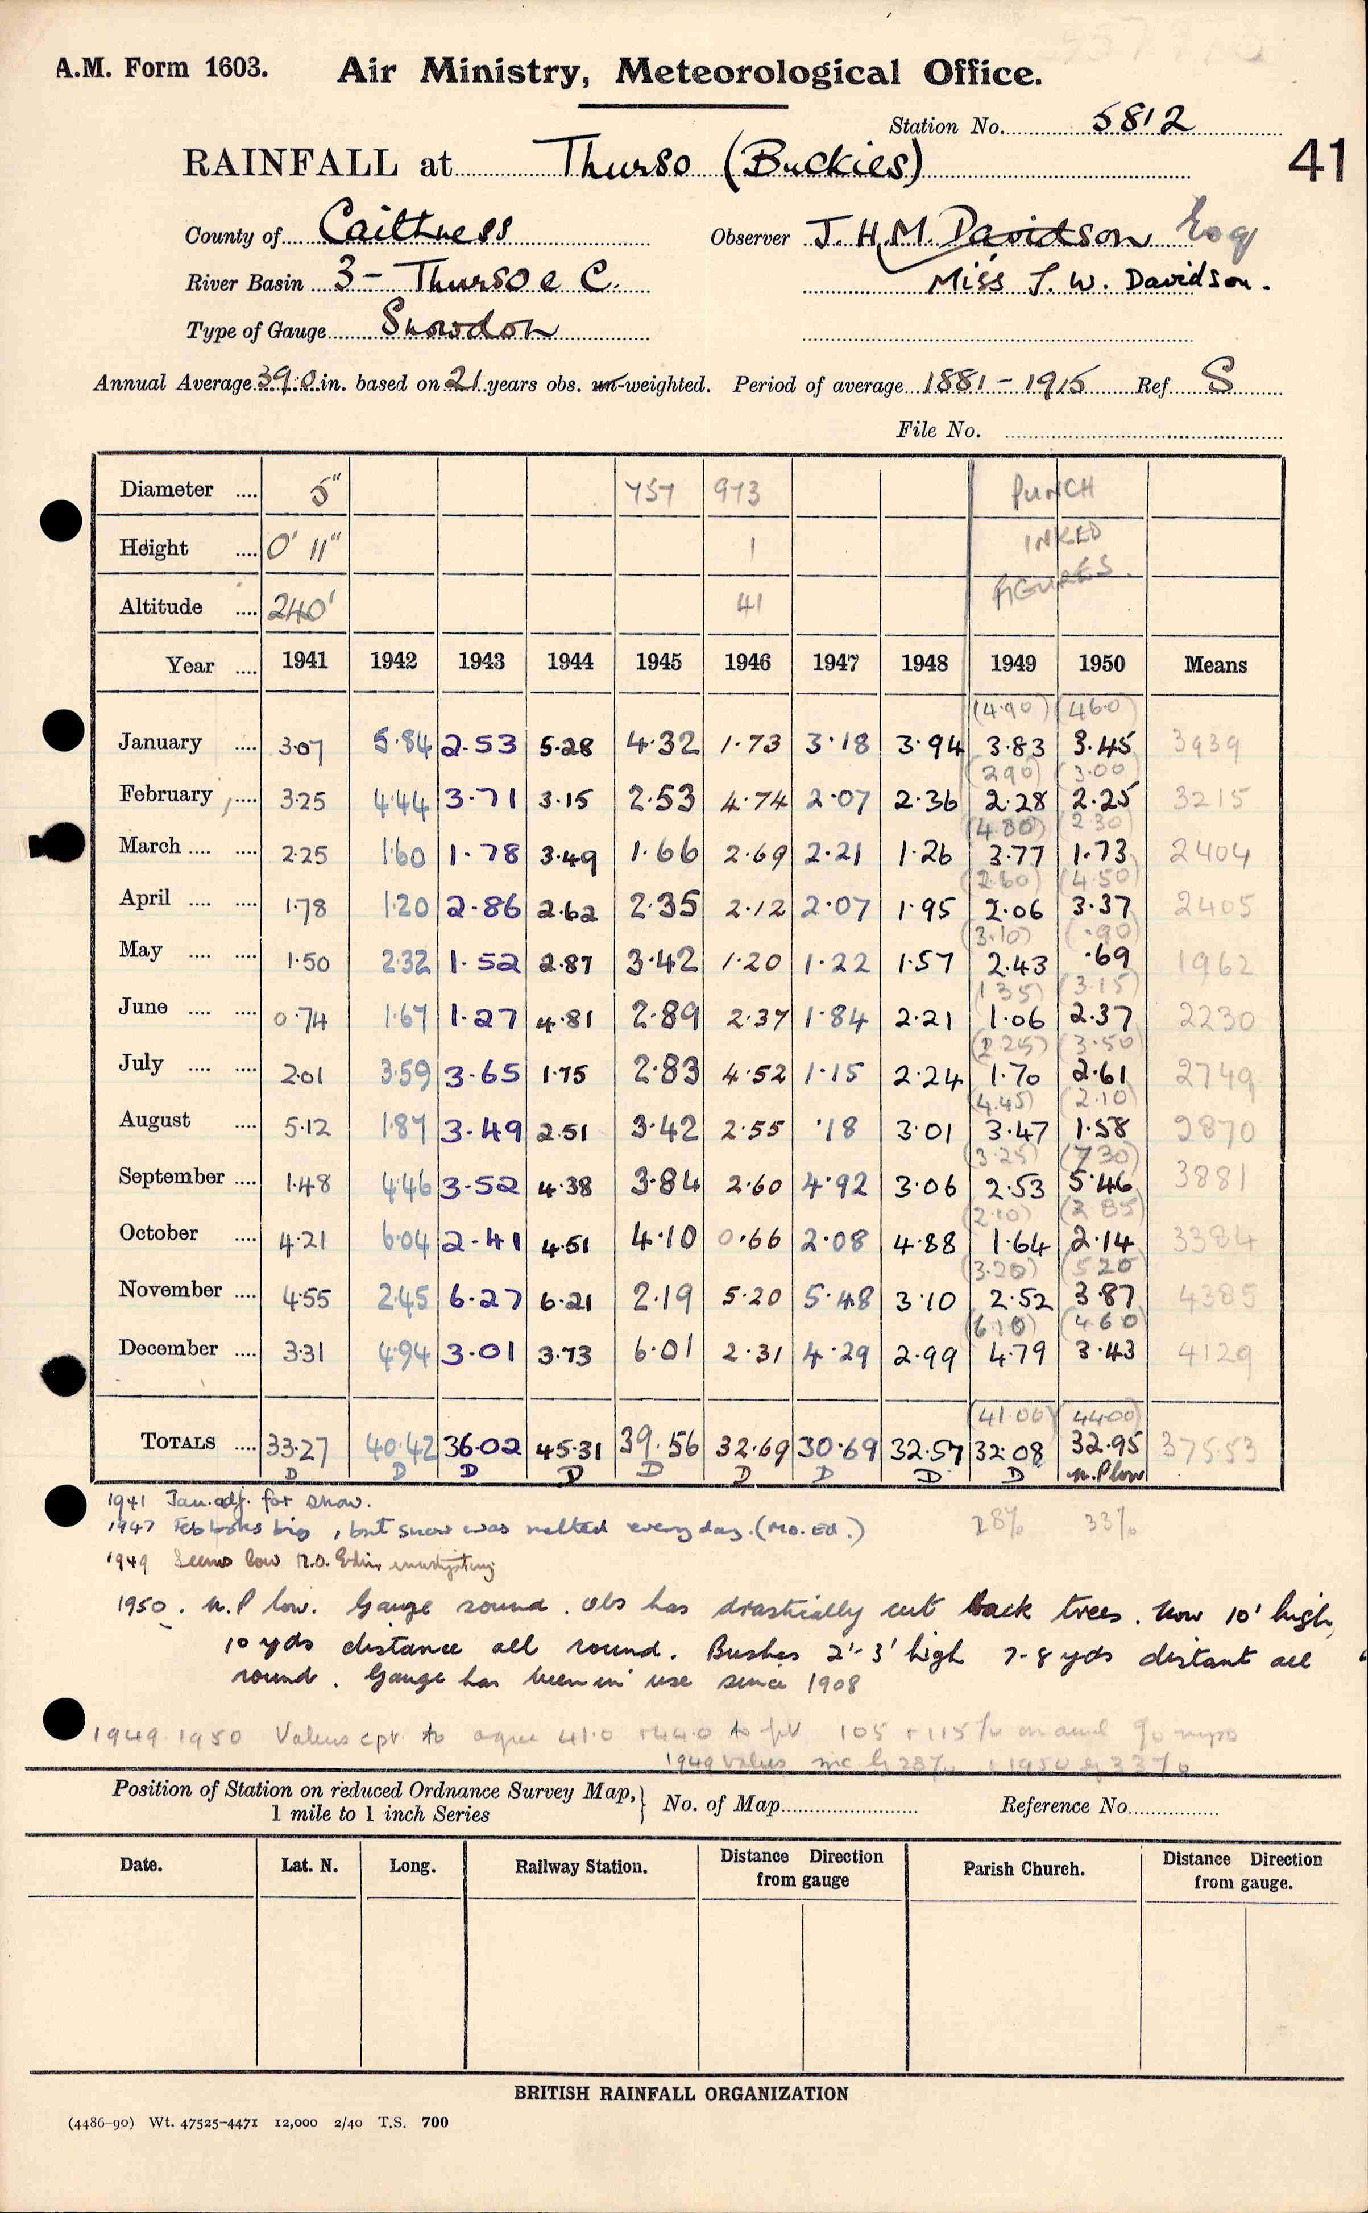 A.M. Form 1603. Air Ministry, Meteorological Office.
Station No. 5812
41
RAINFALL at Thurso (Buckies)
County of Caithness Observer J. H. M. Davidson Esq
River Basin 3 - Thurso e C. Miss J. W. Davidson.
Type of Gauge Snowdon
Annual Average 39.0 in. based on 21 years obs. un-weighted. Period of average 1881 - 1915 Ref S
File No.
Diameter 5" 757 973 PUNCH
Height 0' 11" 1 INKED
Altitude 240' 41 FIGURES.
Year 1941 1942 1943 1944 1945 1946 1947 1948 1949 1950 Means
(4.90) (4.60)
January 3.07 5.84 2.53 5.28 4.32 1.73 3.18 3.94 3.83 3.45 3939
(2.90) (3.00)
February 3.25 4.44 3.71 3.15 2.53 4.74 2.07 2.36 2.28 2.25 3215
(4.80) (2.30)
March 2.25 1.60 1.78 3.49 1.66 2.69 2.21 1.26 3.77 1.73 2404
(2.60) (4.50)
April 1.78 1.20 2.86 2.62 2.35 2.12 2.07 1.95 2.06 3.37 2405
(3.10) (.90)
May 1.50 2.32 1.52 2.87 3.42 1.20 1.22 1.57 2.43 .69 1962
(1.35) (3.15)
June 0.74 1.67 1.27 4.81 2.89 2.37 1.84 2.21 1.06 2.37 2230
(2.25) (3.50)
July 2.01 3.59 3.65 1.75 2.83 4.52 1.15 2.24 1.70 2.61 2749
(4.45) (2.10)
August 5.12 1.87 3.49 2.51 3.42 2.55 .18 3.01 3.47 1.58 2870
(3.25) (7.30)
September 1.48 4.46 3.52 4.38 3.84 2.60 4.92 3.06 2.53 5.46 3881
(2.10) (2.85)
October 4.21 6.04 2.41 4.51 4.10 0.66 2.08 4.88 1.64 2.14 3384
(3.20) (5.20)
November 4.55 2.45 6.27 6.21 2.19 5.20 5.48 3.10 2.52 3.87 4385
(6.10) (4.60)
December 3.31 4.94 3.01 3.73 6.01 2.31 4.29 2.99 4.79 3.43 4129
(41.00) (44.00)
TOTALS 33.27 40.42 36.02 45.31 39.56 32.69 30.69 32.57 32.08 32.95 37553
D D D D D D D D D n.P low
1941 Jan. adj. for snow. 28% 33%
1947 Feb looks big, but snow was melted every day. (Mo. Ed.)
1949 Seems low M.O. Edin investigating
1950. n.P low. Gauge sound. Obs has drastically cut back trees. Now 10' high,
10 yds distance all round. Bushes 2'-3' high 7-8 yds distant all
round. Gauge has been in use since 1908
1949 1950 Values to agree 41.0 + 44.0 to 105 + 115% on
1949 values inc by 28% 1950 by 33%
Position of Station on reduced Ordnance Survey Map, 1 mile to 1 inch Series } No. of Map Reference No.
Date. Lat. N. Long. Railway Station. Distance Direction from gauge Parish Church. Distance Direction from gauge.
BRITISH RAINFALL ORGANIZATION
(4486-90) Wt. 47525-4471 12,000 2/40 T.S. 700